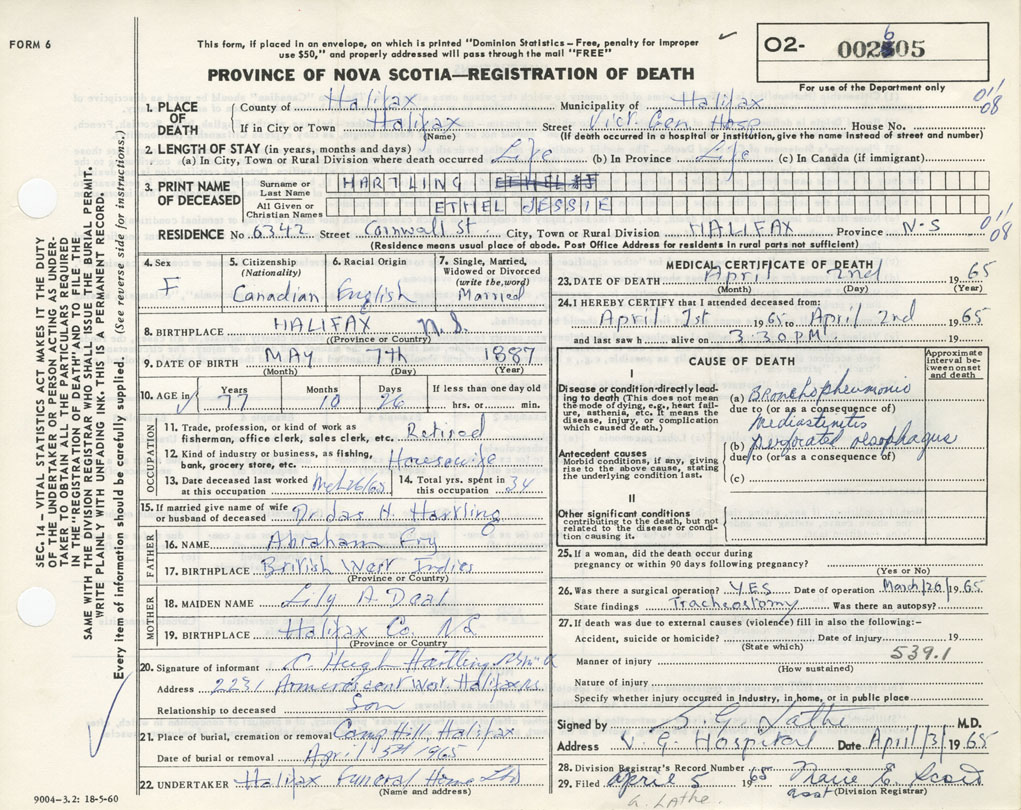 FORM 6
This form, if placed in an envelope, on which is printed "Dominion Statistics – Free, penalty for improper
use $50," and properly addressed will pass through the mail "FREE"
PROVINCE OF NOVA SCOTIA—REGISTRATION OF DEATH
O2- 002605
For use of the Department only
1. PLACE OF DEATH County of Halifax Municipality of Halifax 011/08
If in City or Town Halifax Street Vict. Gen Hosp House No.
(Name) (If death occurred in hospital or institution, give the name instead of street and number)
2. LENGTH OF STAY (in years, months and days)
(a) In City, Town or Rural Division where death occurred Life (b) In Province Life (c) In Canada (if immigrant)
3. PRINT NAME OF DECEASED Surname or Last Name HARTLING
All Given or Christian Names ETHEL JESSIE
RESIDENCE No 6342 Street Cornwall St. City, Town or Rural Division HALIFAX Province N-S 011/08
(Residence means usual place of abode. Post Office Address for residents in rural parts not sufficient)
4. Sex F
5. Citizenship (Nationality) Canadian
6. Racial Origin English
7. Single, Married, Widowed or Divorced (write the word) Married
8. BIRTHPLACE HALIFAX N.S.
(Province or Country)
9. DATE OF BIRTH MAY 7th 1887
(Month) (Day) (Year)
10. AGE in Years 77 Months 10 Days 26 If less than one day old hrs. or min.
OCCUPATION
11. Trade, profession or kind of work as fisherman, office clerk, sales clerk, etc. Retired
12. Kind of industry or business, as fishing, bank, grocery store, etc. Housewife
13. Date deceased last worked at this occupation Mch 26/65
14. Total yrs. spent in this occupation 34
15. If married give name of wife or husband of deceased H. Hartling
FATHER
16. NAME Abraham Fry
17. BIRTHPLACE British West Indies
(Province or Country)
MOTHER
18. MAIDEN NAME Lily A Deal
19. BIRTHPLACE Halifax Co. NS
(Province or Country)
20. Signature of informant C. Hugh Hartling
Address 2231 Armcrescent West Halifax NS
Relationship to deceased Son
21. Place of burial, cremation or removal Camp Hill Halifax
Date of burial or removal April 5th 1965
22. UNDERTAKER Halifax Funeral Home Ltd
(Name and address)
9004-3.2: 18-5-60
MEDICAL CERTIFICATE OF DEATH
23. DATE OF DEATH April 2nd 1965
(Month) (Day) (Year)
24. I HEREBY CERTIFY that I attended deceased from:
April 1st 1965 to April 2nd 1965
and last saw h alive on 3.30 P.M. 19
CAUSE OF DEATH
Approximate interval between onset and death
I
Disease or condition directly leading to death (This does not mean the mode of dying, e.g., heart failure, asthenia, etc. It means the disease, injury, or complication which caused death.)
(a) Bronchopneumonia
due to (or as a consequence of)
Mediastinitis
Antecedent causes
Morbid conditions, if any, giving rise to the above cause, stating the underlying condition last.
(b) perforated oesophagus
due to (or as a consequence of)
(c)
II
Other significant conditions
contributing to the death, but not related to the disease or condition causing it.
25. If a woman, did the death occur during
pregnancy or within 90 days following pregnancy?
(Yes or No)
26. Was there a surgical operation? YES Date of operation March/26/1965
State findings Tracheostomy Was there an autopsy?
27. If death was due to external causes (violence) fill in also the following:–
Accident, suicide or homicide? Date of injury 19
(State which)
539.1
Manner of injury
(How sustained)
Nature of injury
Specify whether injury occurred in industry, in home, or in public place
Signed by S. G. Lathe M.D.
Address V. G. Hospital Date April/3/1965
28. Division Registrar's Record Number
29. Filed April 5 1965 Marie E. Scott
asst (Division Registrar)
G. Lathe.
SEC. 14 – VITAL STATISTICS ACT MAKES IT THE DUTY
OF THE UNDERTAKER OR PERSON ACTING AS UNDER-
TAKER TO OBTAIN ALL THE PARTICULARS REQUIRED
IN THE "REGISTRATION OF DEATH" AND TO FILE THE
SAME WITH THE DIVISION REGISTRAR WHO SHALL ISSUE THE BURIAL PERMIT.
WRITE PLAINLY WITH UNFADING INK. THIS IS A PERMANENT RECORD.
Every item of information should be carefully supplied. (See reverse side for instructions.)